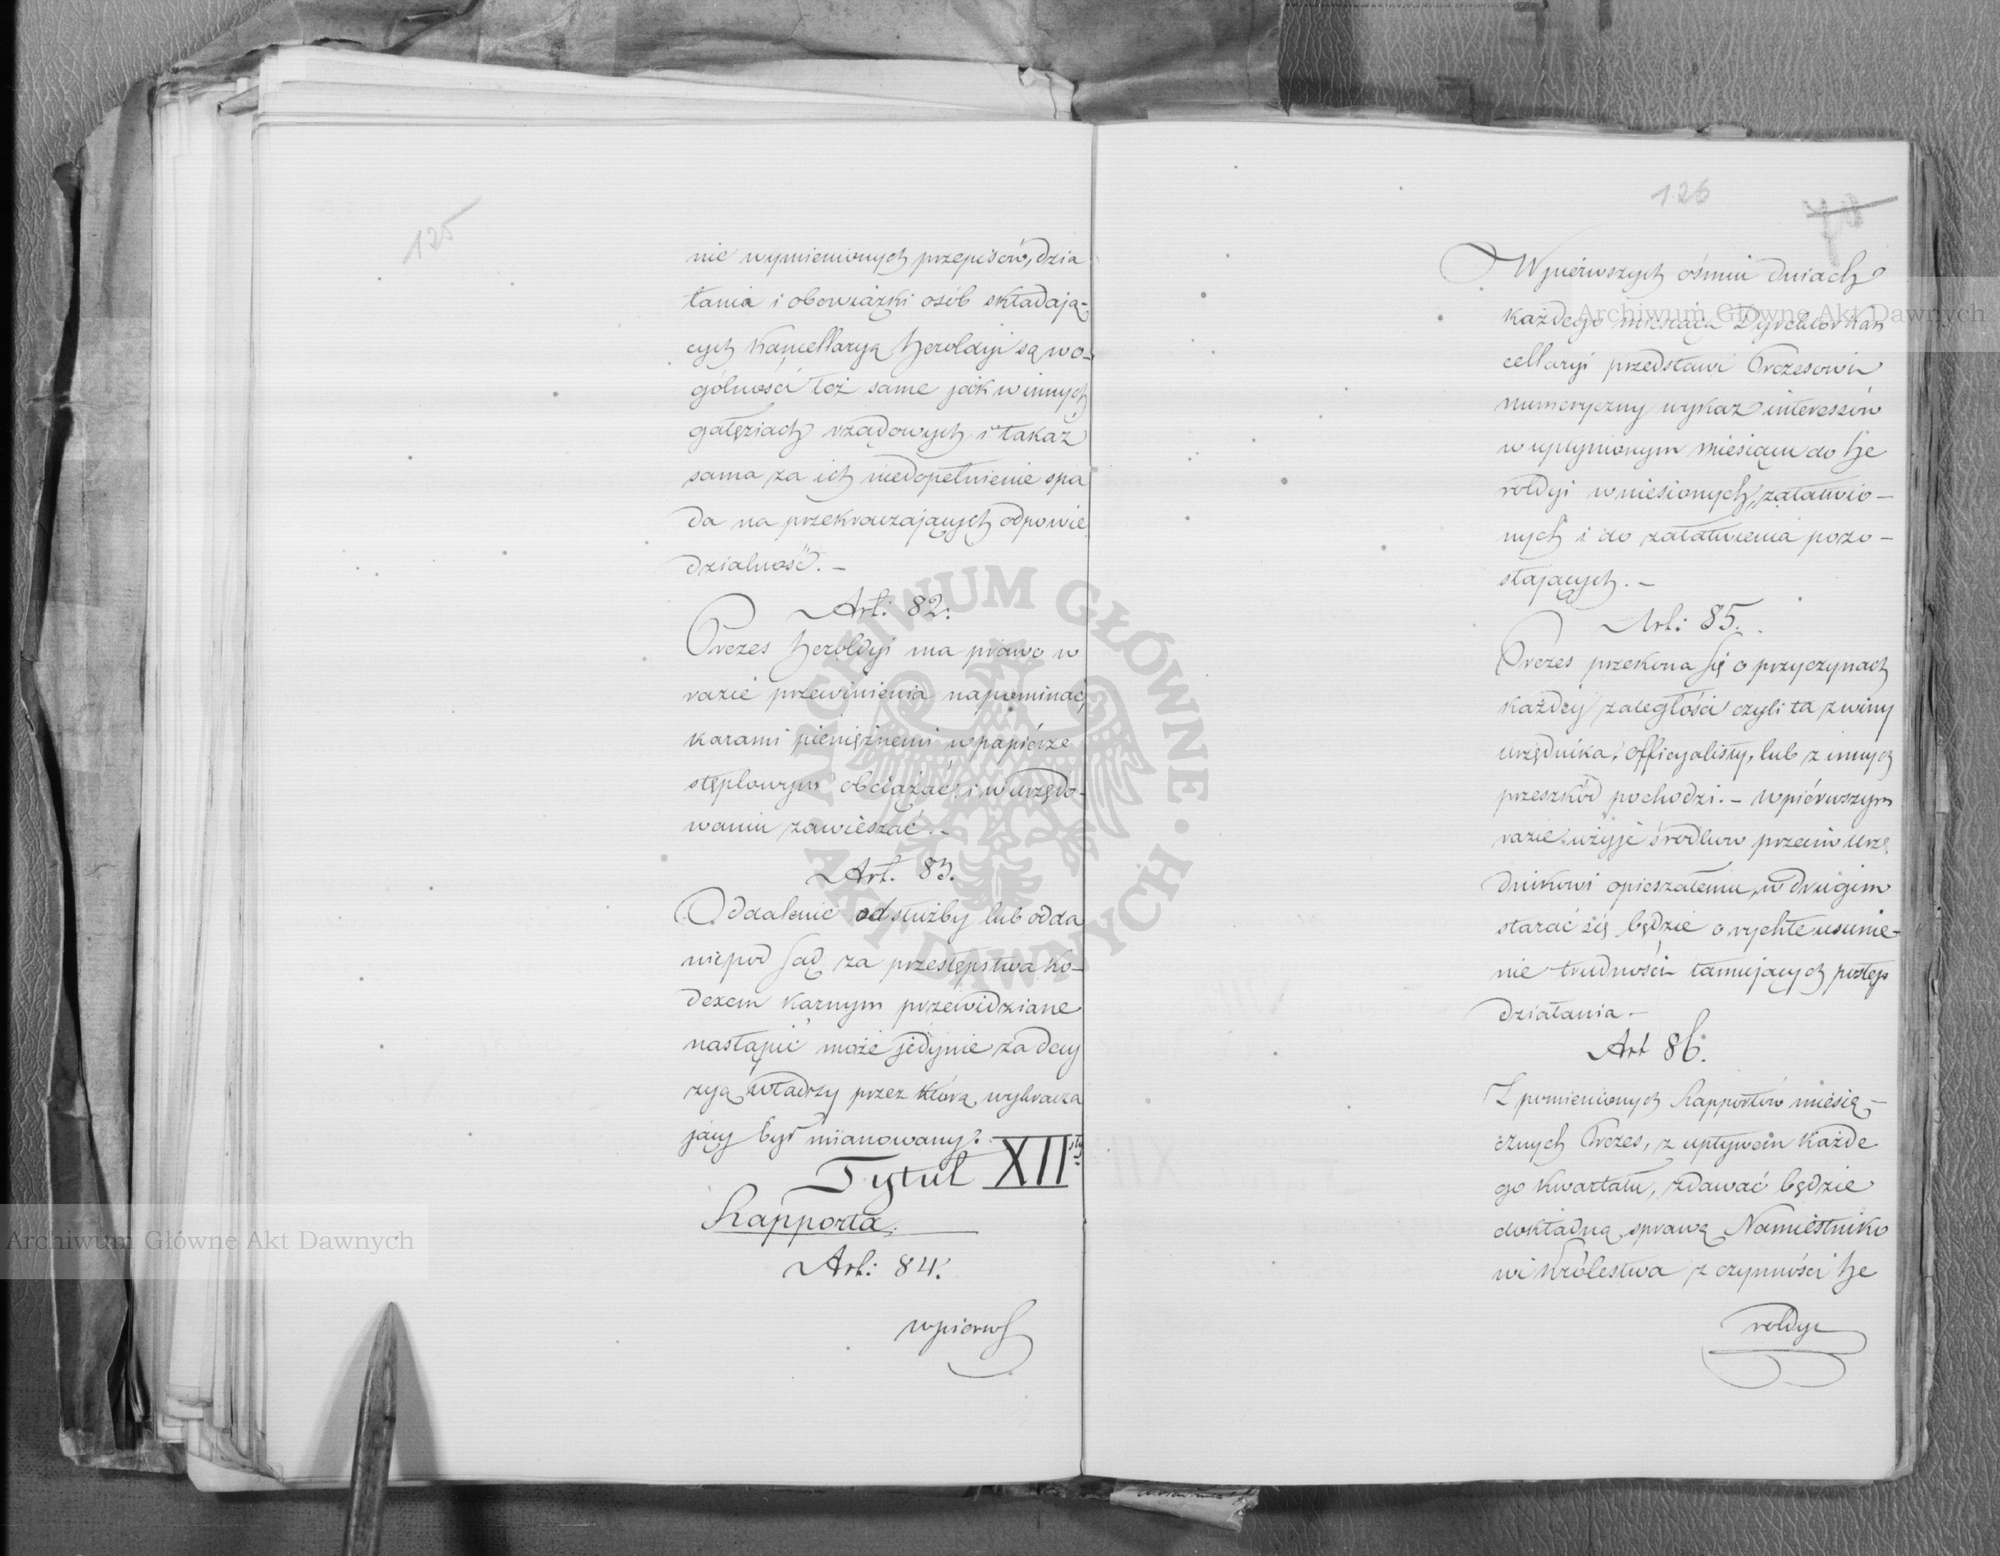 125
nie wymienionych przepisów, dzia
łania i obowiązki osób składają-
cych Kancellaryą Heroldyi są wo-
gólności też same jak w innych
gałęziach rządowych i takaż
sama za ich niedopełnienie spa
da na przekraczających odpowie
dzialność. –
Art: 82.
Prezes Heroldyi ma prawo w
razie przewinienia napominać,
karami pieniężnemi w papiérze
stęplowym obciążać, i w urzędo-
waniu zawieszać. –
Art. 83.
Oddalenie od służby lub odda
nie pod Sąd za przestępstwa Ko-
dexem karnym przewidziane
nastąpić może jedynie za decy
zyą władzy przez którą wykracza
jący był mianowany.
Tytuł XII sty
Rapporta.
Art: 84.
w pierwſ
126
W piérwszych ośmiu dniach
każdego miesiąca Dyrektor Kan
cellaryi przedstawi Prezesowi
numeryczny wykaz interessów
w upłynionym miesiącu do He
roldyi wniesionych, załatwio-
nych i do załatwienia pozo-
stających. –
Art: 85.
Prezes przekona się o przyczynach
każdéy zaległości czyli ta z winy
urzędnika, officyalisty, lub z innych
przeszkód pochodzi. – W piérwszym
razie użyje środków przeciw urzę
dnikowi opieszałemu, w drugim
starać się będzie o rychłe usunie-
nie trudności tamujących postęp
działania. –
Art 86.
Z pomienionych Rapportów miesię-
cznych Prezes, z upływem każde
go kwartału, zdawać będzie
dokładną sprawę Namiestniko
wi Królestwa z czynności He
roldyi
Archiwum Główne Akt Dawnych
Archiwum Główne Akt Dawnych
ARCHIWUM GŁÓWNE · AKT DAWNYCH ·